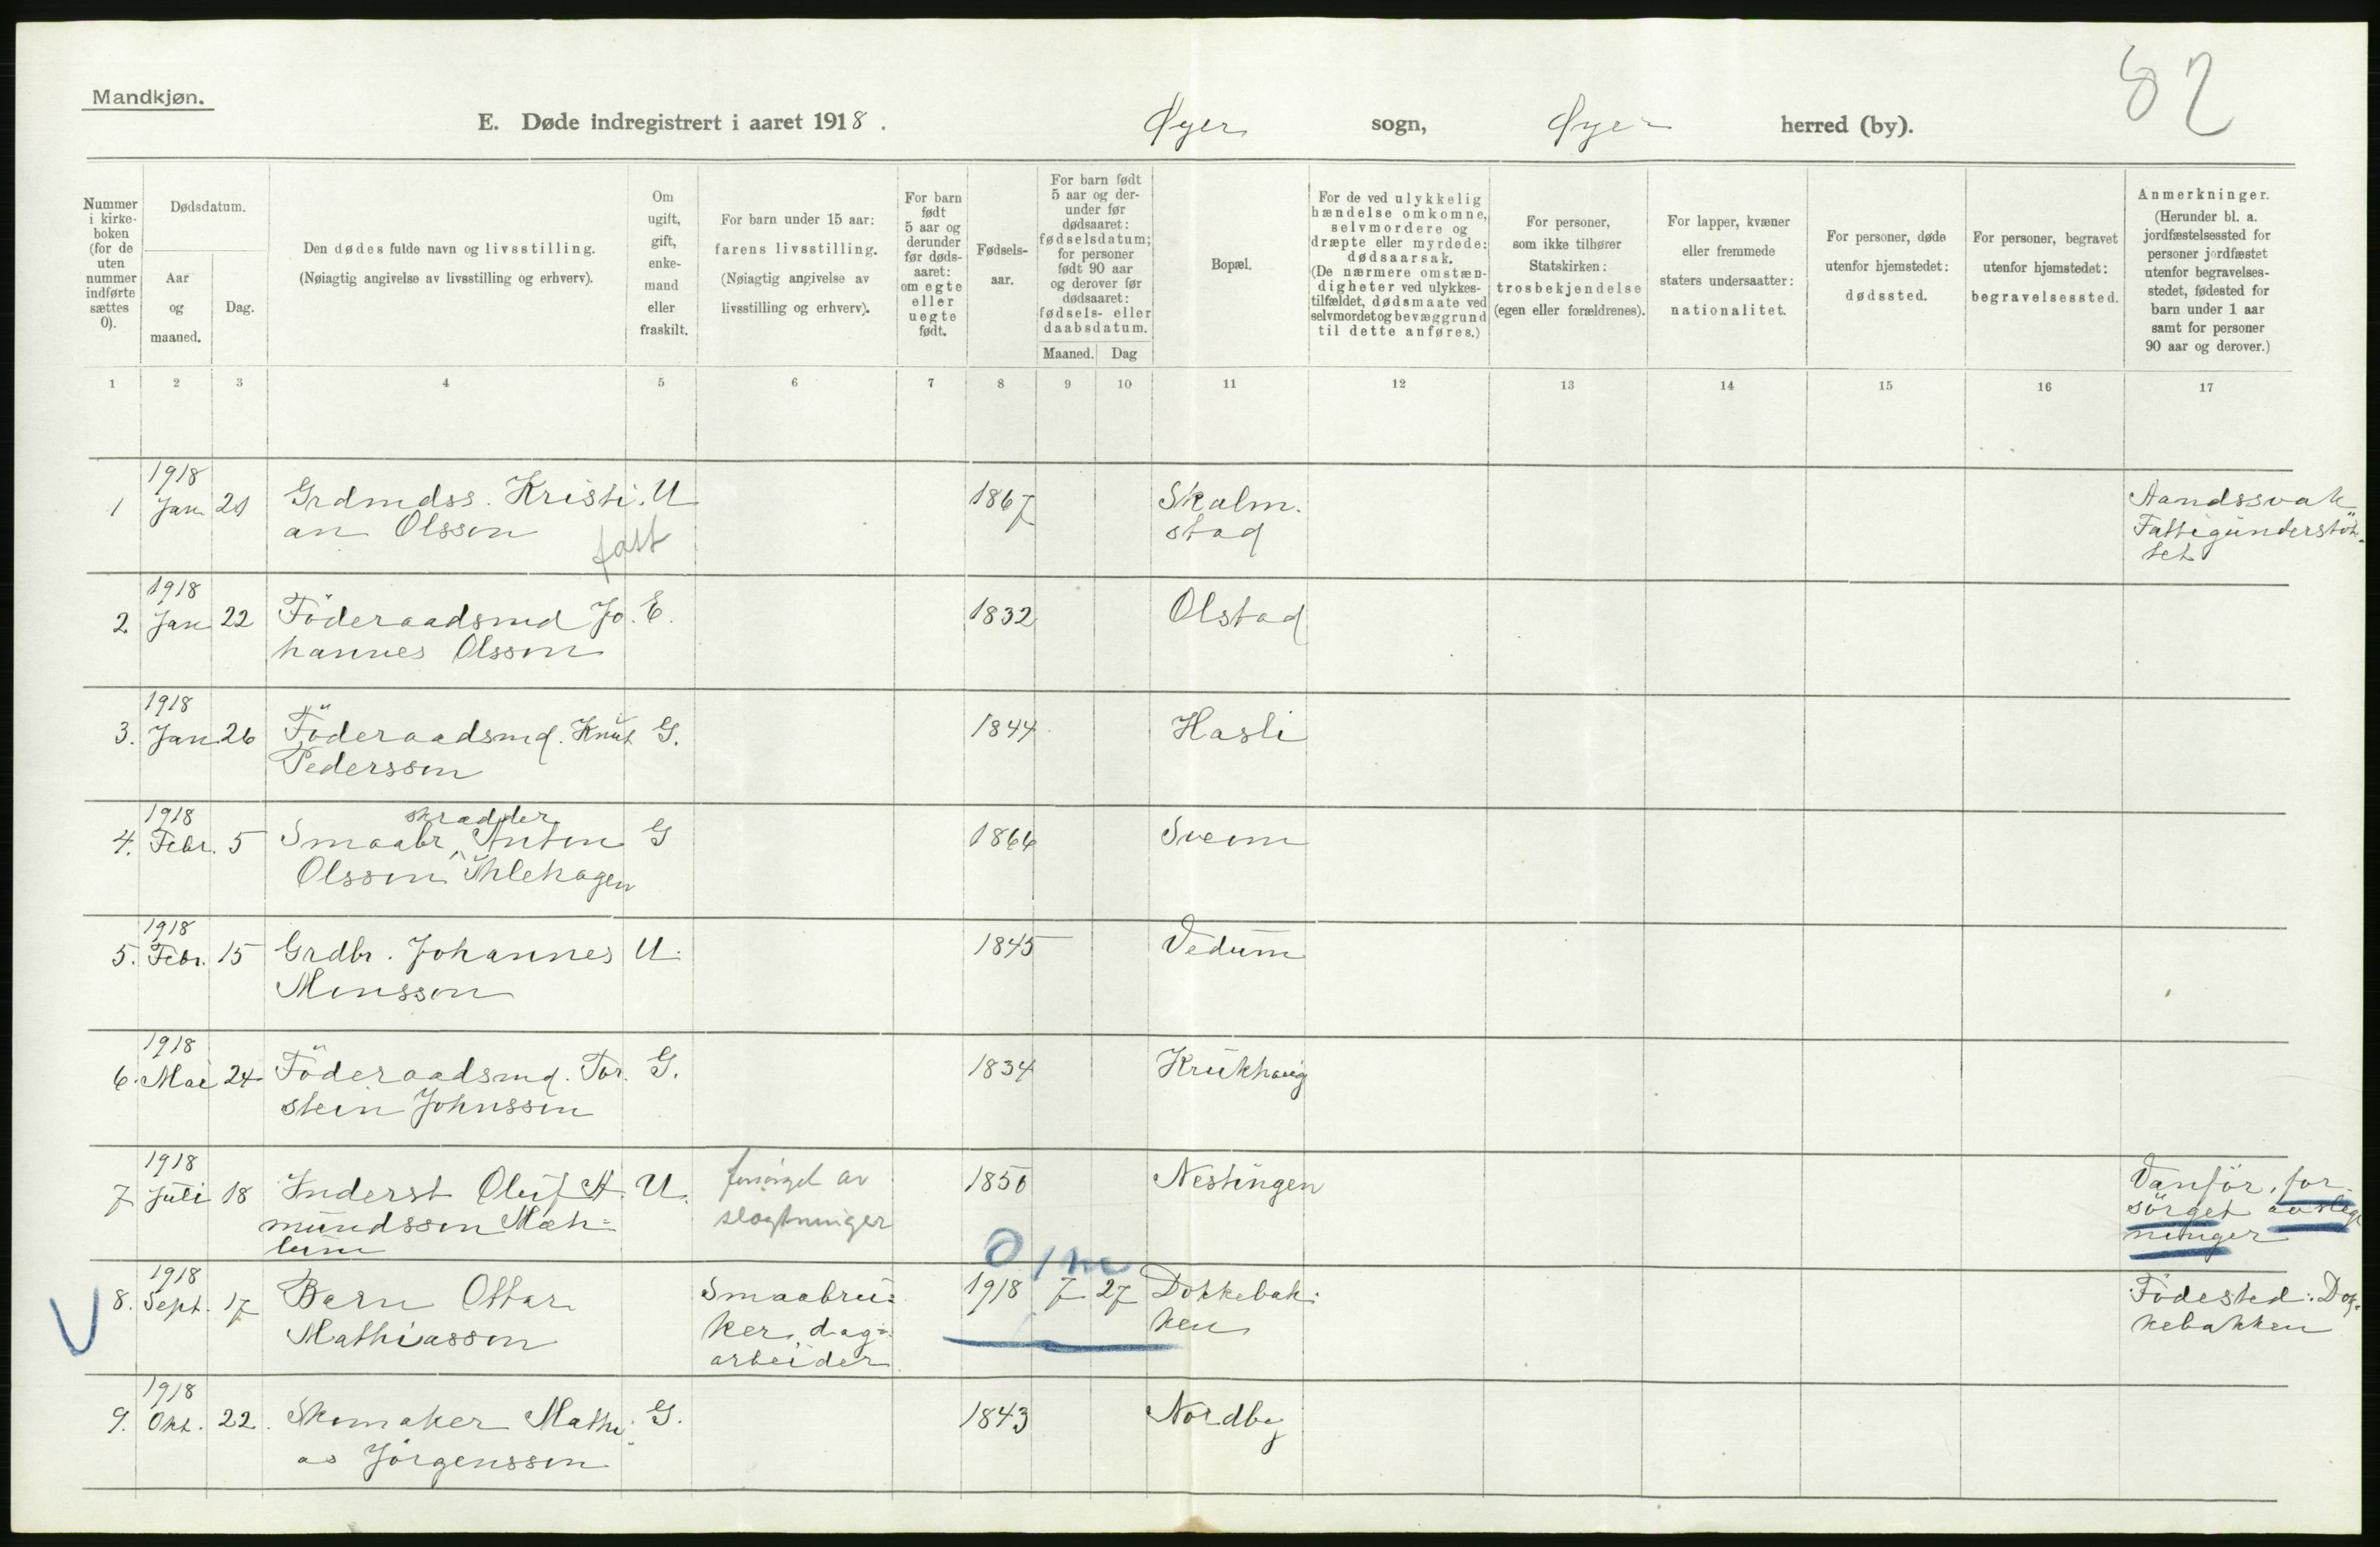 Mandkjøn.
82
E. Døde indregistrert i aaret 1918. Øyer sogn, Øyer herred (by).
Nummer
i kirke-
boken
(for de
uten
nummer
indførte
sættes
0).
Dødsdatum.
Aar
og
maaned.
Dag.
Den dødes fulde navn og livsstilling.
(Nøiagtig angivelse av livsstilling og erhverv).
Om
ugift,
gift,
enke-
mand
eller
fraskilt.
For barn under 15 aar:
farens livsstilling.
(Nøiagtig angivelse av
livsstilling og erhverv).
For barn
født
5 aar og
derunder
før døds-
aaret:
om egte
eller
uegte
født.
Fødsels-
aar.
For barn født
5 aar og der-
under før
dødsaaret:
fødselsdatum;
for personer
født 90 aar
og derover før
dødsaaret:
fødsels- eller
daabsdatum.
Maaned. Dag
Bopæl.
For de ved ulykkelig
hændelse omkomne,
selvmordere og
dræpte eller myrdede:
dødsaarsak.
(De nærmere omstæn-
digheter ved ulykkes-
tilfældet, dødsmaate ved
selvmordet og bevæggrund
til dette anføres.)
For personer,
som ikke tilhører
Statskirken:
trosbekjendelse
(egen eller forældrenes).
For lapper, kvæner
eller fremmede
staters undersaatter:
nationalitet.
For personer, døde
utenfor hjemstedet:
dødssted.
For personer, begravet
utenfor hjemstedet:
begravelsessted.
Anmerkninger.
(Herunder bl. a.
jordfæstelsessted for
personer jordfæstet
utenfor begravelses-
stedet, fødested for
barn under 1 aar
samt for personer
90 aar og derover.)
1 2 3 4 5 6 7 8 9 10 11 12 13 14 15 16 17
1918
1 Jan 21 Grdmdss. Kristi. U 1867 Skalm. Aandssvak
an Olsson stad Fattigunderstöt.
fatt tet
1918
2 Jan 22 Föderaadsmd Jo. E. 1832 Olstad
hannes Olsson
1918
3. Jan 26 Föderaadsmd. Knut G. 1844 Hasli
Pedersson
1918 skrædder
4. Febr. 5 Smaabr. Anton G 1866 Sveom
Olsson Ihlehagen
1918
5. Febr. 15 Grdbr. Johannes U. 1845 Vedum
Monsson
1918
6. Mai 24 Föderaadsmd. Tor. G. 1834 Krukhaug
stein Johnsson
1918
7 Juli 18 Inderst Oluf A. U. forsörget av 1850 Nestingen Vanför, for-
mundsson Mæh= slægtninger sörget av slegt
lum ninger
1918 O/m
8. Sept. 17 Barn Ottar Smaabru= 1918 7 27 Dokkebak: Födested: Dok-
Mathiasson ker, dag= ken kebakken
arbeider
1918
9. Okt. 22. Skomaker Mathi G. 1843 Nordby
as Jörgensson